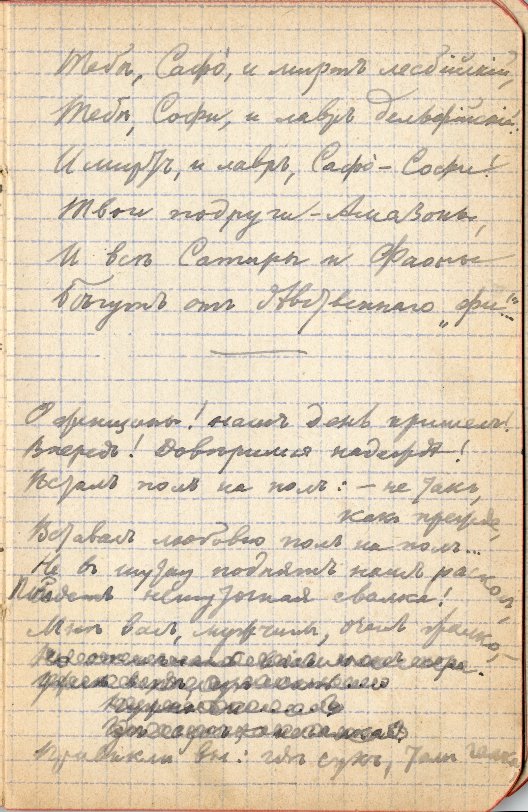 Тебѣ, Сафо, и миртъ лесбійскій,
Тебѣ, Софи, и лавръ дельфійскій.
И миртъ, и лавръ, Сафо-Софи!
Твои подруги-Амазоны,
И всѣ Сатиры и Фаоны
Бѣгутъ отъ явственнаго „фи“...
О женщины! нашъ день пришелъ!
Впередъ! Довѣримся надеждѣ!
Всталъ полъ на полъ: – не такъ,
какъ прежде,
Вставалъ любовью полъ на полъ...
Не въ шутку поднятъ нашъ расколъ,
Пойдетъ нешуточная свалка!
Мнѣ васъ, мужчины, очень жалко, –
Привыкли вы: гдѣ сукъ, тамъ галка